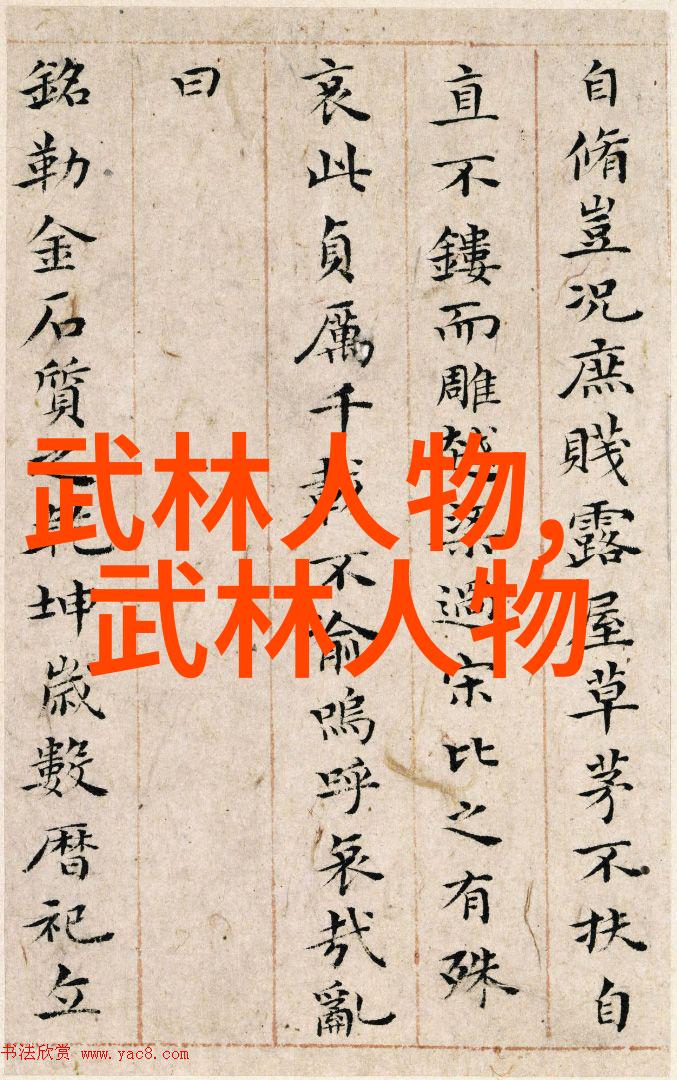 自脩豈況庶賤露屋草茅不扶自
直不鏤而雕越梁過宋比之有殊
哀此貞厲千載不嗚呼哀哉亂
曰
銘勒金石質之乾坤歲數曆祀立
武林人物,
武林人物
书法欣赏 www.yac8.com